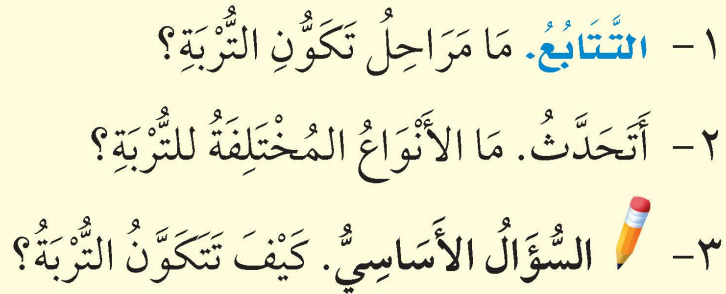 ١- التَّتَابُعُ. مَا مَرَاحِلُ تَكَوُّنِ التُّرْبَةِ؟
٢- أَتَحَدَّثُ. مَا الأَنْوَاعُ المُخْتَلِفَةُ للتُّرْبَةِ؟
٣- السُّؤَالُ الأَسَاسِيُّ. كَيْفَ تَتَكَوَّنُ التُّرْبَةُ؟